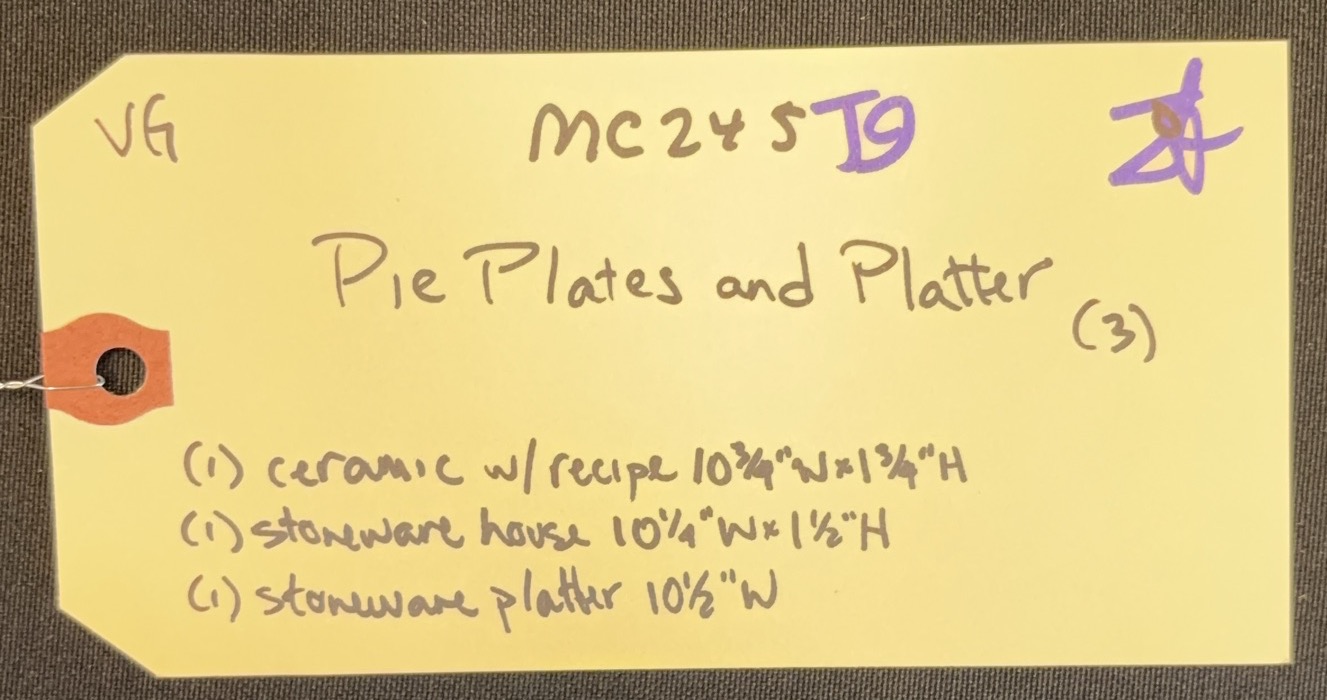 VG
MC245 I9
Pie Plates and Platter
(3)
(1) ceramic w/ recipe 10 3/4" W x 1 3/4" H
(1) stoneware house 10 1/4" W x 1 1/2" H
(1) stoneware platter 10 1/2" W